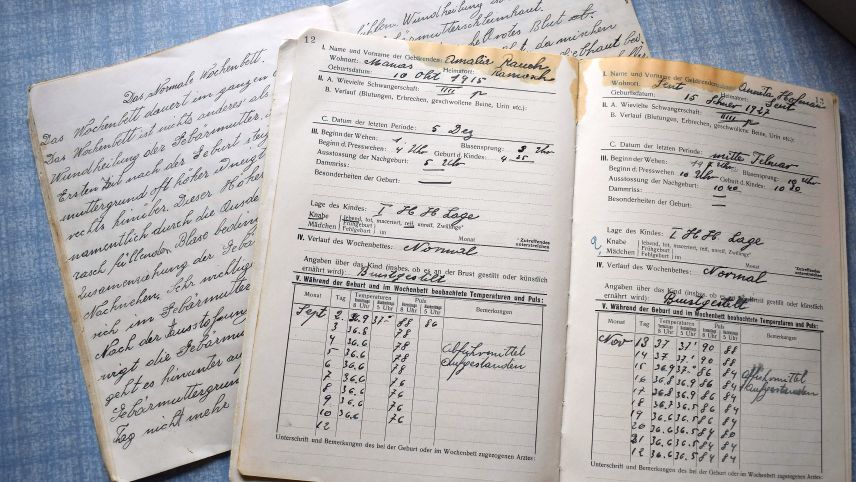 Das Normale Wochenbett.
Das Wochenbett dauert im ganzen
Das Wochenbett ist nichts anderes als
Wundheilung der Gebärmutter.
Ersten Zeit nach der Geburt steig
muttergrund oft höher
rechts hinüber. Dieser Höher
namentlich durch die Ausdeh
rasch füllenden Blase beding
Zusammenziehung der Gebär
Nachwehen. Sehr wichtig
rich im Gebärmutter
Nach der Ausstossung
ist die Gebärmutter
geht es hinunter auf
Gebärmuttergrund
Tag nicht mehr
Wundheilung
Gebärmutterschleimhaut.
rotes Blut
12
I. Name und Vorname der Gebärenden: Amalia Rauch
Wohnort: Manas Heimatort: Ramosch
Geburtsdatum: 10 Okt 1915
II. A. Wievielte Schwangerschaft: IIII p
B. Verlauf (Blutungen, Erbrechen, geschwollene Beine, Urin etc.):
C. Datum der letzten Periode: 5 Dez
III. Beginn der Wehen: 1. Blasensprung: 2 Uhr
Beginn d. Presswehen 4 Uhr Geburt d. Kindes: 4 35
Ausstossung der Nachgeburt: 5 Uhr
Dammriss: —
Besonderheiten der Geburt: —
Lage des Kindes: I H H Lage
Knabe lebend, tot, maceriert, reif, unreif, Zwillinge*
Mädchen Frühgeburt Fehlgeburt im Monat *Zutreffendes unterstreichen
IV. Verlauf des Wochenbettes: Normal
Angaben über das Kind (insbes. ob es an der Brust gestillt oder künstlich
ernährt wird): Brustgestillt
V. Während der Geburt und im Wochenbett beobachtete Temperaturen und Puls:
Monat Tag Temperaturen Puls Bemerkungen
8 Uhr 5 Uhr 8 Uhr 5 Uhr
Sept 2 36.9 37- 88 86
3 36.8 88
4 36.6 78
5 36.6 78 Abführmittel
6 36.6 78 aufgestanden
7 36.6 76
8 36.6 76
9 36.6 76
10 36.6 76
12
Unterschrift und Bemerkungen des bei der Geburt oder im Wochenbett zugezogenen Arztes:
13
I. Name und Vorname der Gebärenden: Annita Hofma
Wohnort: Sent Heimatort: Sent
Geburtsdatum: 15 1927
II. A. Wievielte Schwangerschaft: IIII p
B. Verlauf (Blutungen, Erbrechen, geschwollene Beine, Urin etc.):
C. Datum der letzten Periode: mitte Februar
III. Beginn der Wehen: Uhr Blasensprung: 10 Uhr
Beginn d. Presswehen 10 Uhr Geburt d. Kindes: 10 20
Ausstossung der Nachgeburt: 10 40
Dammriss: —
Besonderheiten der Geburt: —
Lage des Kindes: I H H Lage
Knabe lebend, tot, maceriert, reif, unreif, Zwillinge*
Mädchen Frühgeburt Fehlgeburt im Monat *Zutreffendes unterstreichen
IV. Verlauf des Wochenbettes: Normal
Angaben über das Kind (insbes. ob es an der Brust gestillt oder künstlich
ernährt wird): Brustgestillt
V. Während der Geburt und im Wochenbett beobachtete Temperaturen und Puls:
Monat Tag Temperaturen Puls Bemerkungen
8 Uhr 5 Uhr 8 Uhr 5 Uhr
Nov 13 37 37' 90 88
14 37 37.' 90 88
15 36.9 37.- 86 84 Abführmittel
16 36.8 36.9 86 84 aufgestanden
17 36.8 36.9 84 84
18 36.7 36.5 86 84
19 36.6 36.5 84 84
20 36.6 36.5 84 80
21 36.6 36.5 84 84
12 36.6 36.5 84 84
Unterschrift und Bemerkungen des bei der Geburt oder im Wochenbett zugezogenen Arztes: